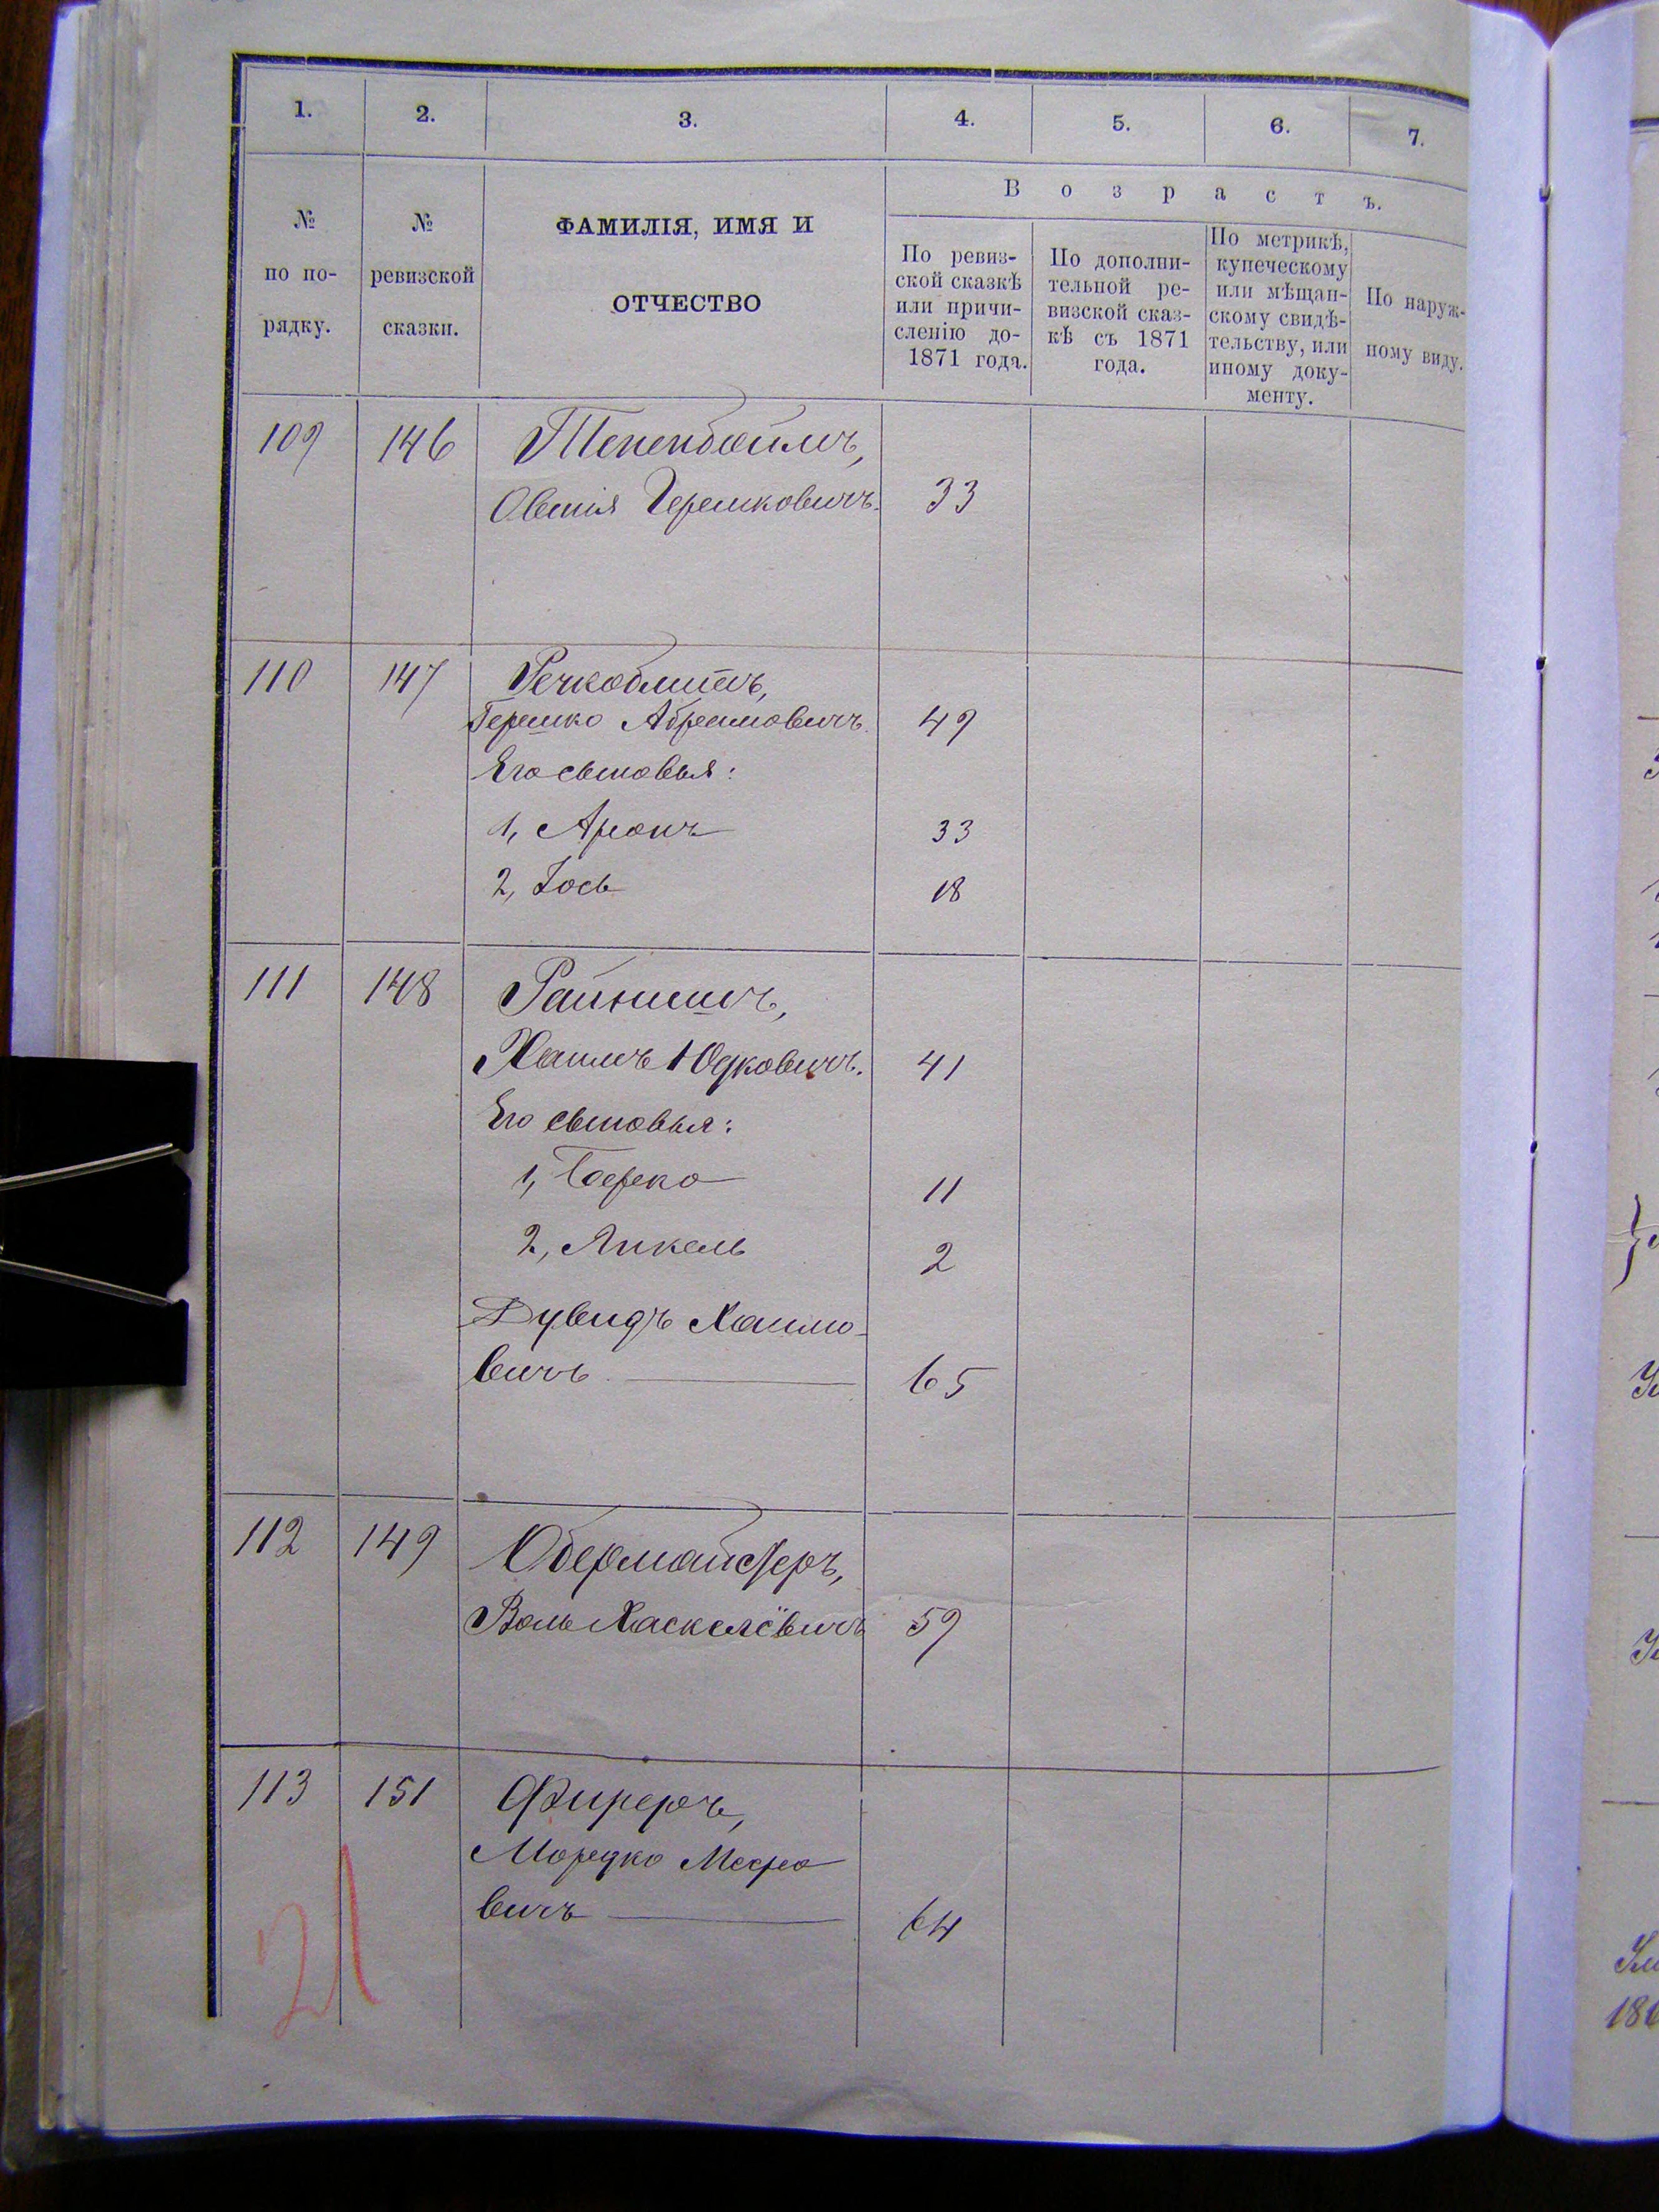 1. 2. 3. 4. 5. 6. 7.
№ по по-рядку.
№ ревизской сказки.
ФАМИЛІЯ, ИМЯ И
ОТЧЕСТВО
Возрастъ.
По ревиз-
ской сказкѣ
или причи-
сленію до-
1871 года.
По дополни-
тельной ре-
визской сказ-
кѣ съ 1871
года.
По метрикѣ,
купеческому
или мѣщан-
скому свидѣ-
тельству, или
иному доку-
менту.
По наруж-
ному виду.
109 146 Тененбоймъ,
Овшія Гершковичъ. 33
110 147 Речкоблитъ,
Гершко Абрамовичъ. 49
Его сыновья:
1, Аронъ 33
2, Іось 18
111 148 Райнишъ,
Хаимъ Юдковичъ. 41
Его сыновья:
1, Берко 11
2, Янкель 2
Дувидъ Хаимо-
вичъ 65
112 149 Обермайстеръ,
Воль Хаскелёвичъ 59
113 151 Фиреръ,
Мордко Мееро
вичъ 64
21